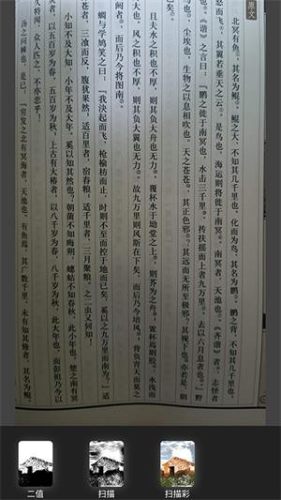 原文
北冥有鱼，其名为鲲。鲲之大，不知其几千里也。化而为鸟，其名为鹏。鹏之背，不知其几千里也，
怒而飞，其翼若垂天之云。是鸟也，海运则将徙于南冥。南冥者，天池也。《齐谐》者，志怪者
也。《谐》之言曰：“鹏之徙于南冥也，水击三千里，抟扶摇而上者九万里，去以六月息者也。”野
马也，尘埃也，生物之以息相吹也。天之苍苍，其正色邪？其远而无所至极邪？其视下也，亦若是，则
且夫水之积也不厚，则其负大舟也无力。覆杯水于坳堂之上，则芥为之舟；置杯焉则胶，水浅而
舟大也。风之积也不厚，则其负大翼也无力。故九万里则风斯在下矣，而后乃今培风；背负青天而莫之
夭阏者，而后乃今将图南。
蜩与学鸠笑之曰：“我决起而飞，枪榆枋而止，时则不至而控于地而已矣，奚以之九万里而南为？”适
莽苍者，三飡而反，腹犹果然；适百里者，宿舂粮；适千里者，三月聚粮。之二虫又何知！
小知不及大知，小年不及大年。奚以知其然也？朝菌不知晦朔，蟪蛄不知春秋，此小年也。楚之南有冥
灵者，以五百岁为春，五百岁为秋；上古有大椿者，以八千岁为春，八千岁为秋，此大年也。而彭祖乃今以
久特闻，众人匹之，不亦悲乎！
汤之问棘也是已：“穷发之北有冥海者，天池也。有鱼焉，其广数千里，未有知其修者，其名为鲲。
二值
扫描
扫描彩